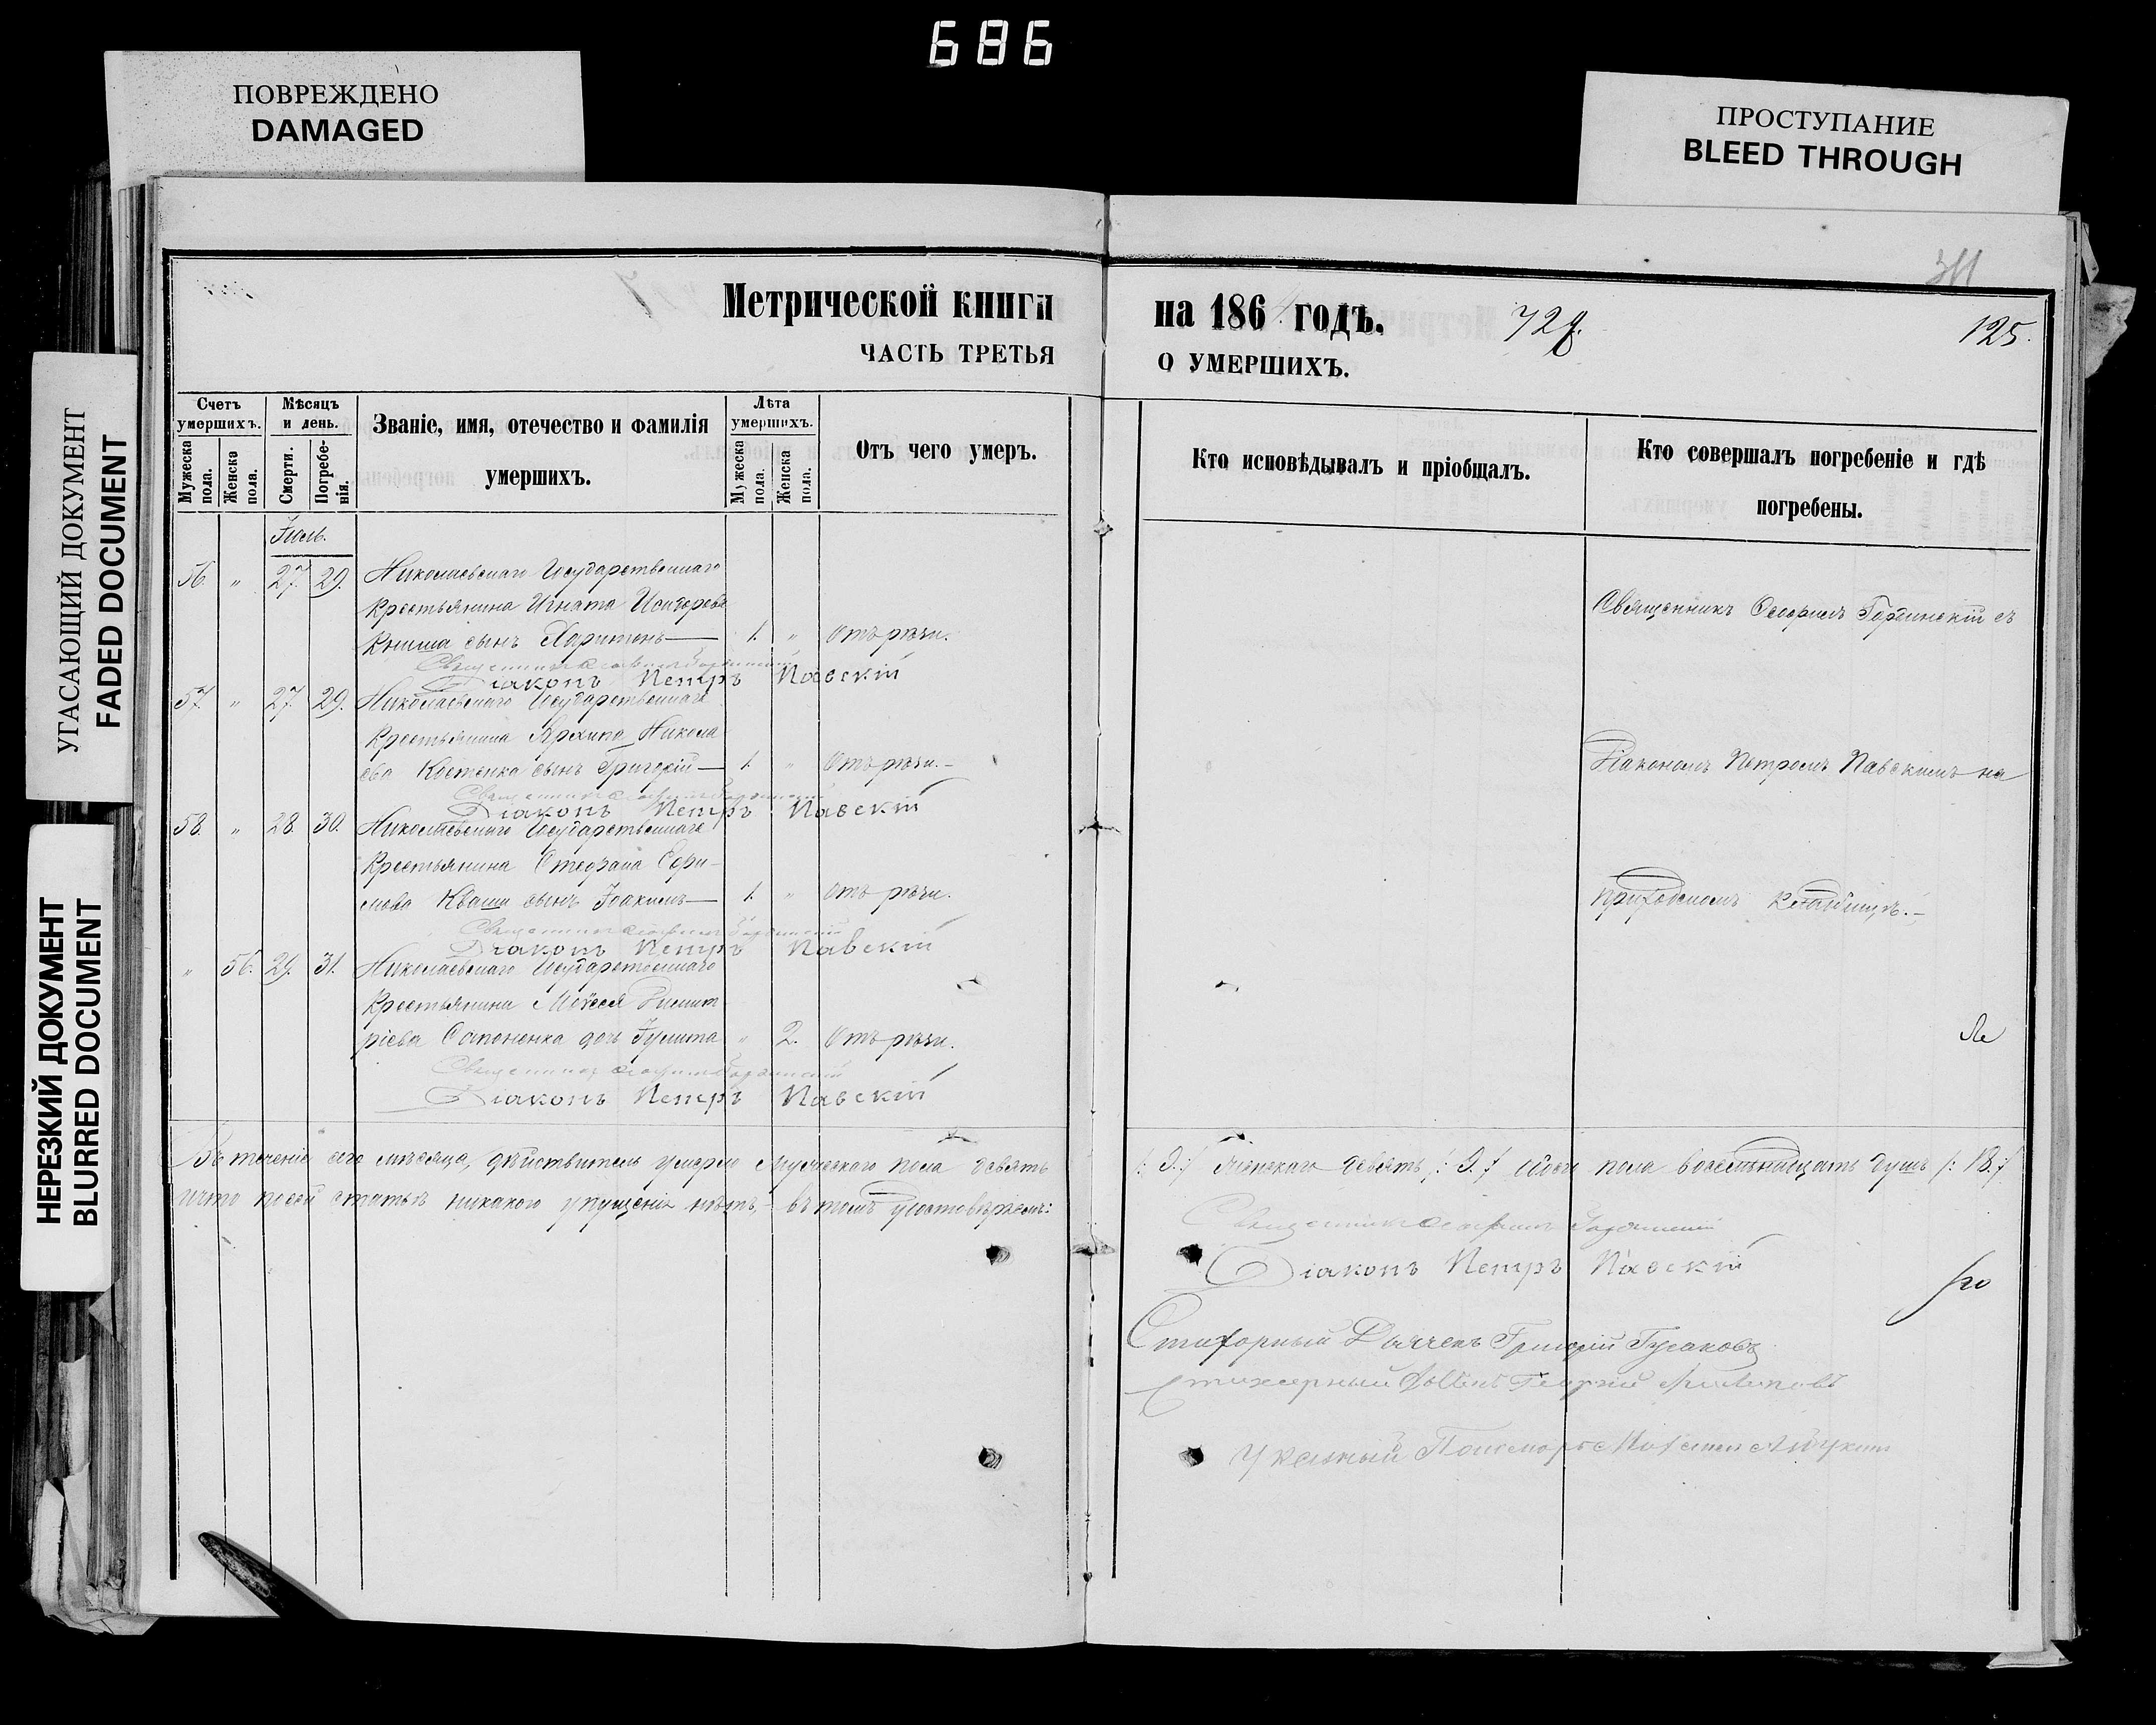 686
ПОВРЕЖДЕНО
DAMAGED
ПРОСТУПАНИЕ
BLEED THROUGH
УГАСАЮЩИЙ ДОКУМЕНТ
FADED DOCUMENT
НЕРЕЗКИЙ ДОКУМЕНТ
BLURRED DOCUMENT
Метрической книги на 1864 годъ. 125.
ЧАСТЬ ТРЕТЬЯ О УМЕРШИХЪ.
Счетъ умершихъ.
Мужеска пола.
Женска пола.
Мѣсяцъ и день.
Смерти.
Погребенія.
Званіе, имя, отечество и фамилія умершихъ.
Лѣта умершихъ.
Мужеска пола.
Женска пола.
Отъ чего умеръ.
Кто исповѣдывалъ и пріобщалъ.
Кто совершалъ погребеніе и гдѣ погребены.
Іюль.
56. " 27. 29. Николаевскаго Государственнаго
Крестьянина Игната Исидорова
Книша сынъ Харитонъ— 1. " Отъ рѣзи.
Священникъ
Діаконъ Петръ Павскій
57. " 27. 29. Николаевскаго Государственнаго
Крестьянина Архипа Никола
ева Костенка сынъ Григорій— 1. " Отъ рѣзи.—
Священникъ
Діаконъ Петръ Павскій
58. " 28. 30. Николаевскаго Государственнаго
Крестьянина Стефана Ефи—
мова Кваши сынъ Іоакимъ— 1. " Отъ рѣзи.
Священникъ
Діаконъ Петръ Павскій
" 56. 29. 31. Николаевскаго Государственнаго
Крестьянина Моѵсея Димит
ріева Сапоненка дочь Іулита " 2. Отъ рѣзи.
Священникъ
Діаконъ Петръ Павскій
Священникъ съ
Діакономъ Петромъ Павскимъ на
приходскомъ кладбищѣ.—
Въ теченіе сего мѣсяца, дѣйствительно умерло мужескаго пола девять /: 9. :/ женскаго девять /: 9. :/ обоего пола восемнадцать душъ /: 18. :/
и что по сей статьѣ никакого упущенія нѣтъ,— въ томъ удостовѣряемъ:
Священникъ
Діаконъ Петръ Павскій
Стихарный Дьячекъ Григорій Гусаковъ
Стихарный
Указный Пономарь